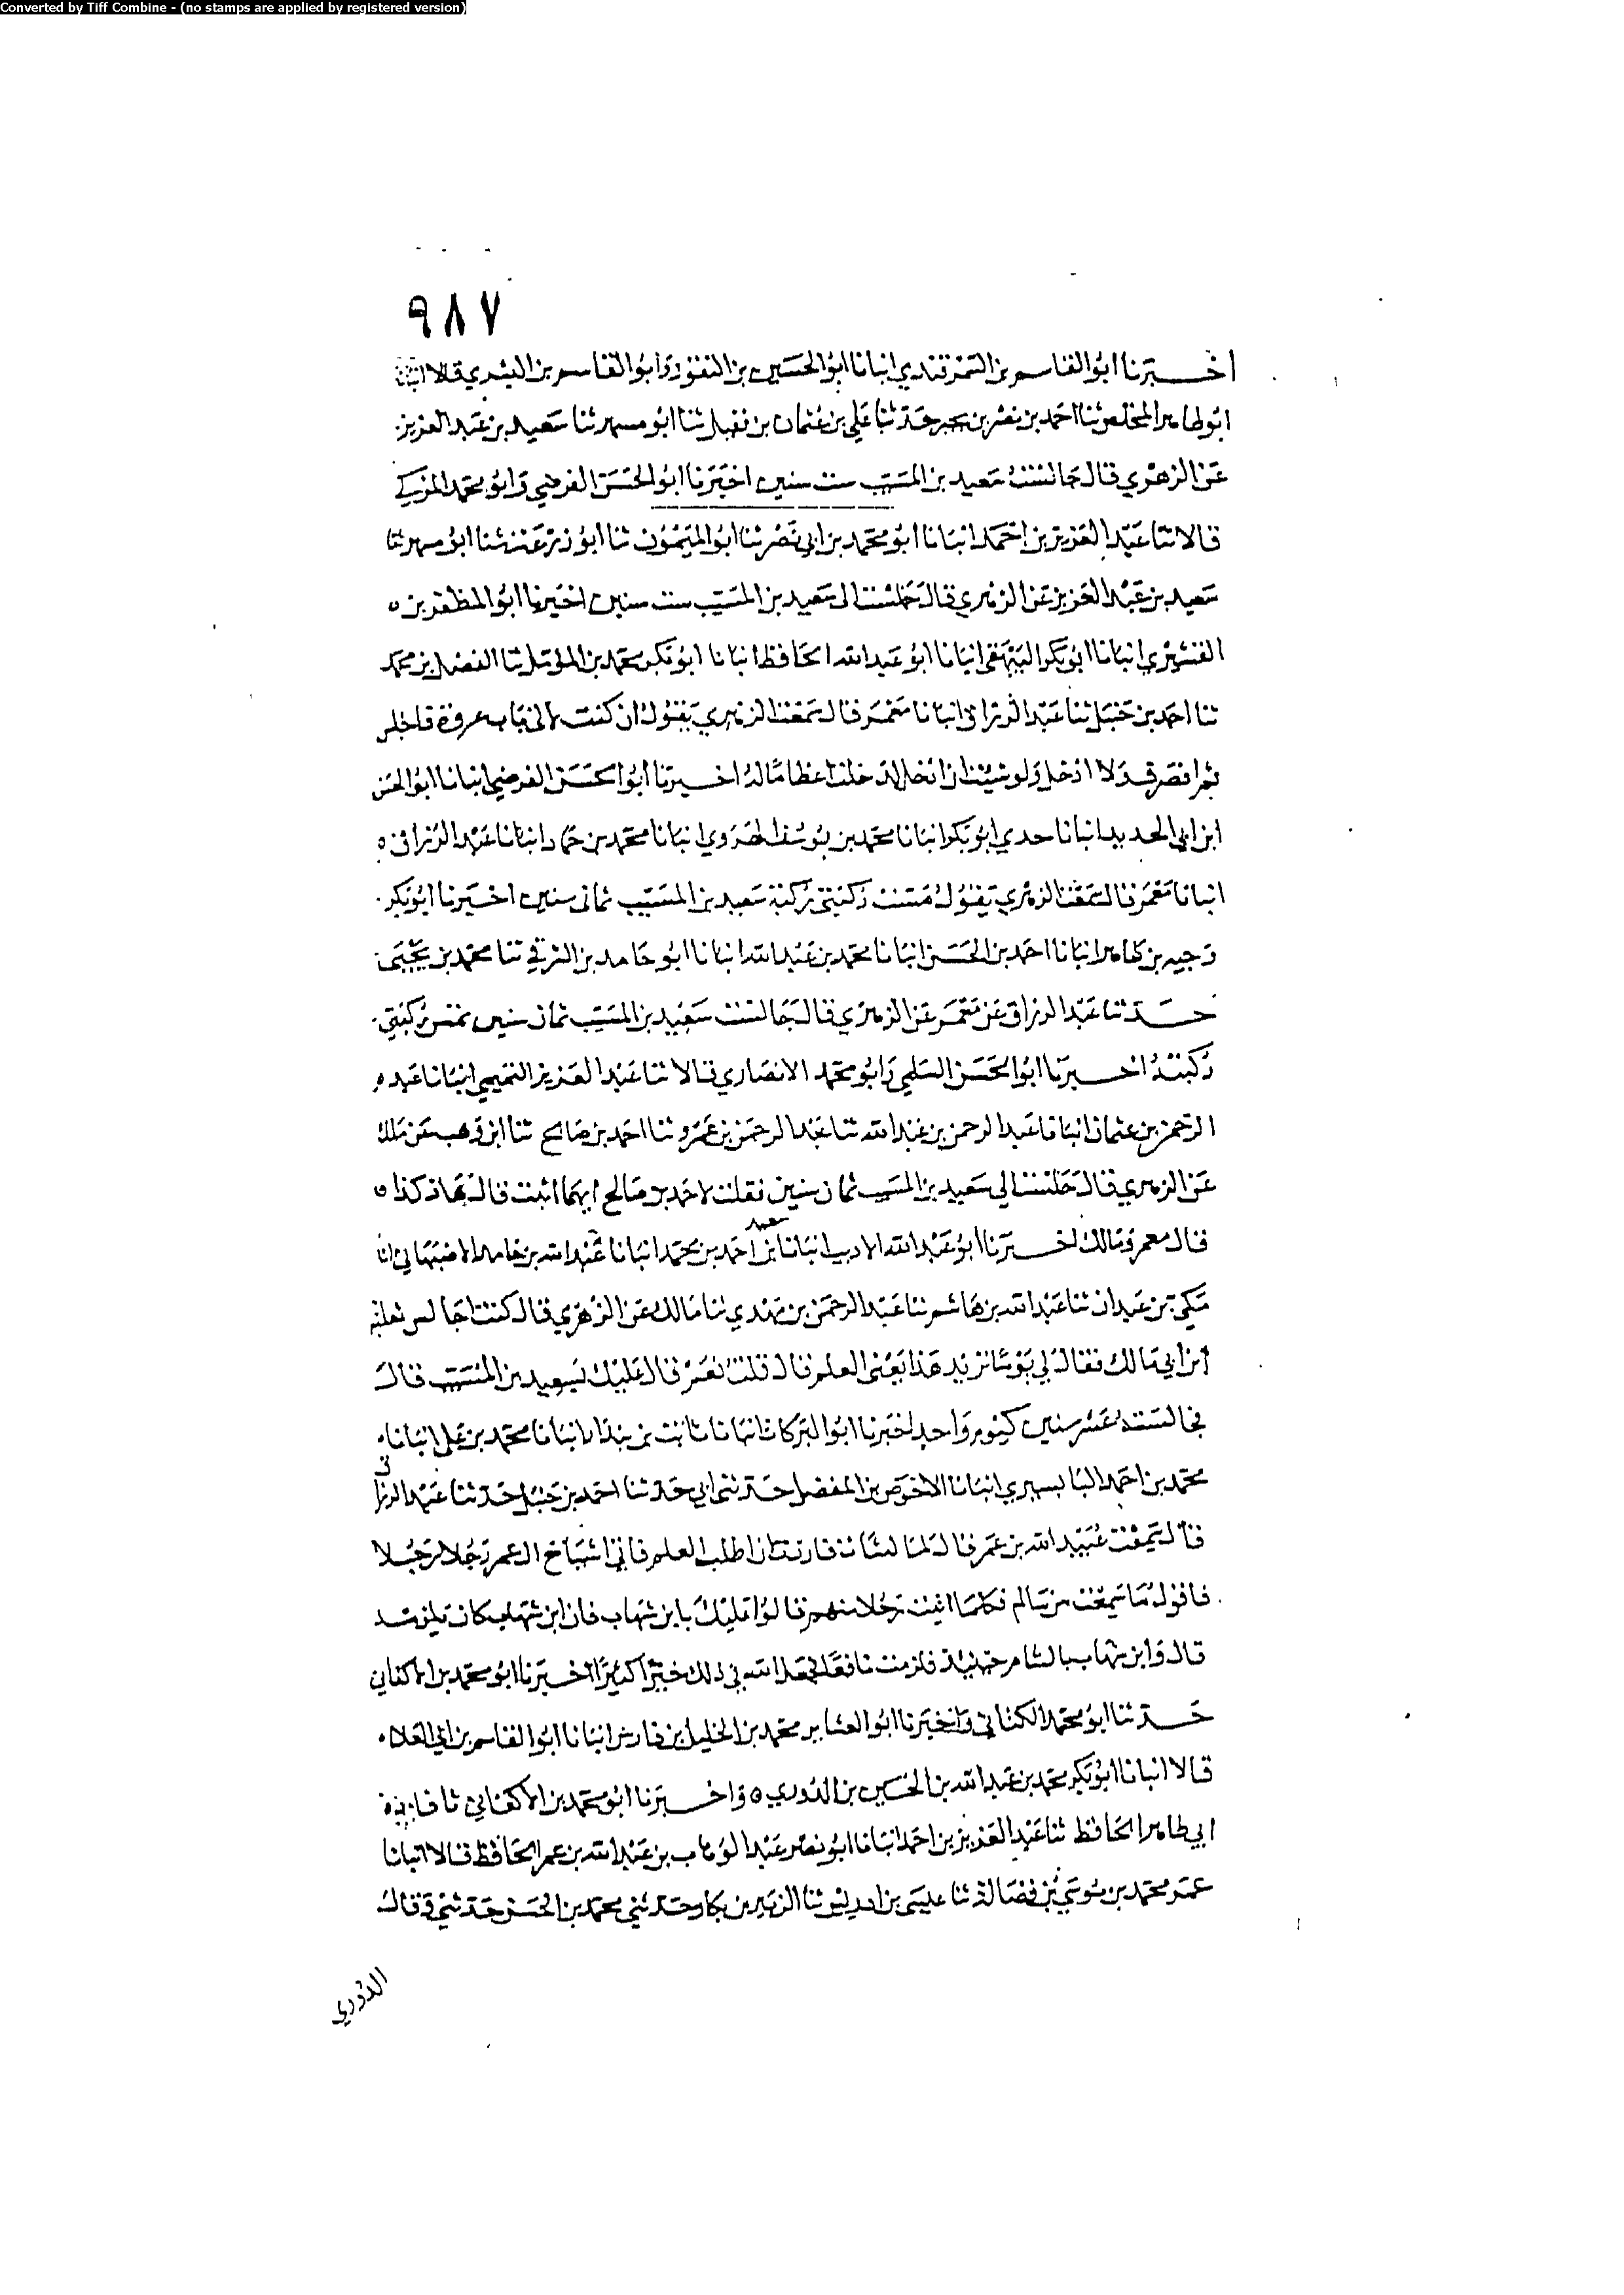 Converted by Tiff Combine - (no stamps are applied by registered version)
٩٨٧
اخبرنا ابو القاسم بن السمرقندي انبانا ابو الحسين بن النقور وابو القاسم بن البسري قالا انبانا
ابو طاهر المخلص ثنا احمد بن نصر بن بجير حدثنا علي بن عثمان بن نفيل ثنا ابو مسهر ثنا سعيد بن عبد العزيز
عن الزهري قال جالست سعيد بن المسيب ست سنين اخبرنا ابو الحسن الفرضي وابو محمد المزكي
قالا ثنا عبد العزيز بن احمد انبانا ابو محمد بن ابي نصر ثنا ابو الميمون ثنا ابو زرعة ثنا ابو مسهر ثنا
سعيد بن عبد العزيز عن الزهري قال جلست الى سعيد بن المسيب ست سنين اخبرنا ابو المظفر بن ٥
القشيري انبانا ابو بكر البيهقي انبانا ابو عبد الله الحافظ انبانا ابو بكر محمد بن المؤمل ثنا الفضل بن محمد
ثنا احمد بن حنبل ثنا عبد الرزاق انبانا معمر قال سمعت الزهري يقول ان كنت لاتي باب عروة فاجلس
ثم انصرف ولا ادخل ولو شئت ان ادخل لدخلت اعظاما له اخبرنا ابو الحسن الفرضي انبانا ابو الحسن
ابن ابي الحديد انبانا جدي ابو بكر انبانا محمد بن يوسف الهروي انبانا محمد بن حماد انبانا عبد الرزاق ٥
انبانا معمر قال سمعت الزهري يقول مست ركبتي ركبة سعيد بن المسيب ثماني سنين اخبرنا ابو بكر
وجيه بن طاهر انبانا احمد بن الحسن انبانا محمد بن عبد الله انبانا ابو حامد بن الشرقي ثنا محمد بن يحيى
حدثنا عبد الرزاق عن معمر عن الزهري قال جالست سعيد بن المسيب ثمان سنين تمس ركبتي
ركبته اخبرنا ابو الحسن السلمي وابو محمد الانصاري قالا ثنا عبد العزيز التميمي انبانا عبد ٥
الرحمن بن عثمان انبانا عبد الرحمن بن عبد الله ثنا عبد الرحمن بن عمرو ثنا احمد بن صالح ثنا ابن وهب عن ملك
عن الزهري قال جلست الى سعيد بن المسيب ثمان سنين فقلت لاحمد بن صالح ايهما اثبت قال هاذ كذا ٥
قال معمر ومالك اخبرنا ابو عبد الله الاديب انبانا سعيد بن احمد بن محمد انبانا عبد الله بن حامد الاصبهاني انا
مكي بن عبدان ثنا عبد الله بن هاشم ثنا عبد الرحمن بن مهدي ثنا مالك عن الزهري قال كنت اجالس ثعلبة
ابن ابي مالك فقال لي يوما تريد هذا يعني العلم قال قلت نعم قال عليك بسعيد بن المسيب قال
فجالسته عشر سنين كيوم واحد اخبرنا ابو البركات انبانا ثابت بن بندار انبانا محمد بن علي انبانا
محمد بن احمد البابسيري انبانا الاحوص بن المفضل حدثني ابي حدثنا احمد بن حنبل حدثنا عبد الرزاق
قال سمعت عبيد الله بن عمر قال لما نشات فاردت ان اطلب العلم فاتي اشياخ ال عمر رجلا رجلا
فاقول ما سمعت من سالم فكلما اتيت رجلا منهم قالوا عليك بابن شهاب فان ابن شهاب كان يلزمه
قال وابن شهاب بالشام حينئذ فلزمت نافعا فجعل الله في ذلك خيرا كثيرا اخبرنا ابو محمد بن الاكفاني
حدثنا ابو محمد الكتاني واخبرنا ابو العشاير محمد بن الخليل بن فارس انبانا ابو القاسم بن ابي العلاء
قالا انبانا ابو بكر محمد بن عبد الله بن الحسين بن الدوري ٥ واخبرنا ابو محمد بن الاكفاني ثنا
ابي طاهر الحافظ ثنا عبد العزيز بن احمد انبانا ابو نصر عبد الوهاب بن عبد الله بن عمر الحافظ قالا انبانا
عمر محمد بن موسى بن فضالة ثنا عيسى بن ادريس ثنا الزبير بن بكار وحدثني محمد بن الحسن حدثني قال
الدوري